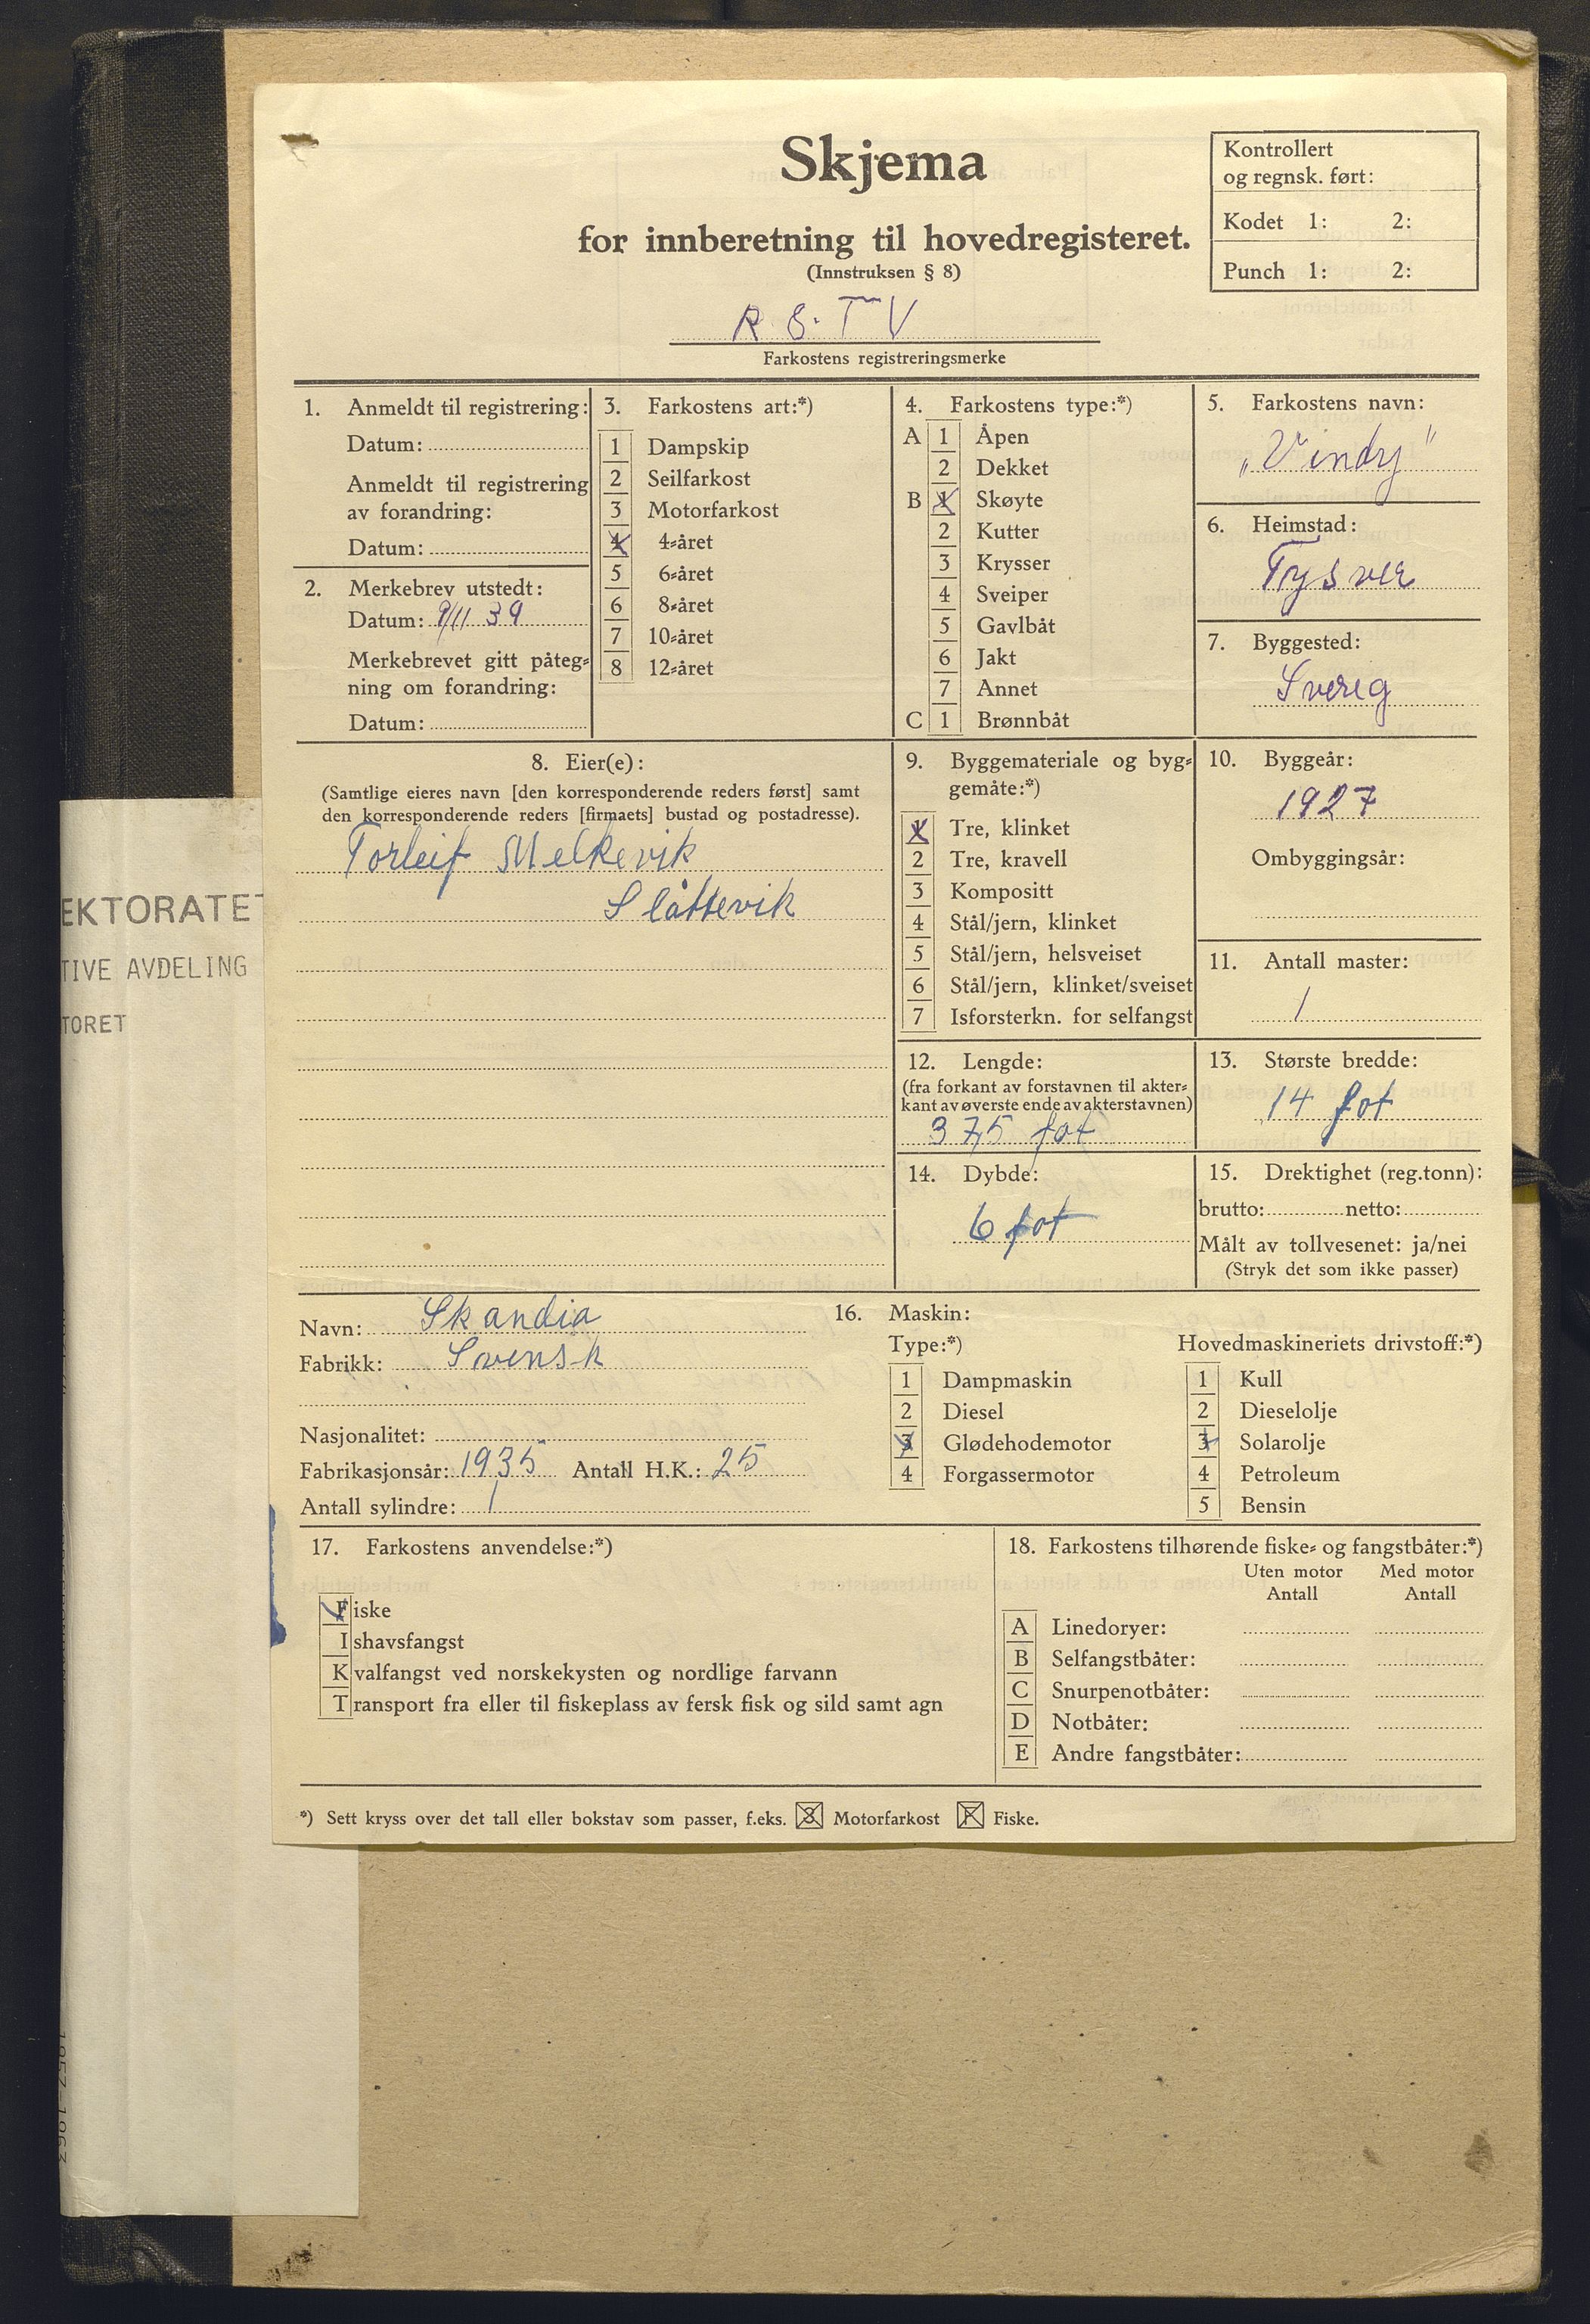 Skjema
for innberetning til hovedregisteret.
(Innstruksen § 8)
Kontrollert
og regnsk. ført:
Kodet 1: 2:
Punch 1: 2:
R. 8. T V
Farkostens registreringsmerke
1. Anmeldt til registrering:
Datum:
Anmeldt til registrering
av forandring:
Datum:
2. Merkebrev utstedt:
Datum: 9/11 39
Merkebrevet gitt påteg-
ning om forandring:
Datum:
3. Farkostens art:*)
1 Dampskip
2 Seilfarkost
3 Motorfarkost
4 4-året
5 6-året
6 8-året
7 10-året
8 12-året
4. Farkostens type:*)
A 1 Åpen
2 Dekket
B 1 Skøyte
2 Kutter
3 Krysser
4 Sveiper
5 Gavlbåt
6 Jakt
7 Annet
C 1 Brønnbåt
5. Farkostens navn:
„Vindy"
6. Heimstad:
Tysver
7. Byggested:
Svereg
8. Eier(e):
(Samtlige eieres navn [den korresponderende reders først] samt
den korresponderende reders [firmaets] bustad og postadresse).
Torleif Melkevik
Slåttevik
9. Byggemateriale og byg-
gemåte:*)
1 Tre, klinket
2 Tre, kravell
3 Kompositt
4 Stål/jern, klinket
5 Stål/jern, helsveiset
6 Stål/jern, klinket/sveiset
7 Isforsterkn. for selfangst
10. Byggeår:
1927
Ombyggingsår:
11. Antall master:
1
12. Lengde:
(fra forkant av forstavnen til akter-
kant av øverste ende av akterstavnen)
37,5 fot
13. Største bredde:
14 fot
14. Dybde:
6 fot
15. Drektighet (reg.tonn):
brutto: netto:
Målt av tollvesenet: ja/nei
(Stryk det som ikke passer)
16. Maskin:
Navn: Skandia
Fabrikk: Svensk
Nasjonalitet:
Fabrikasjonsår: 1935 Antall H.K.: 25
Antall sylindre: 1
Type:*)
1 Dampmaskin
2 Diesel
3 Glødehodemotor
4 Forgassermotor
Hovedmaskineriets drivstoff:*)
1 Kull
2 Dieselolje
3 Solarolje
4 Petroleum
5 Bensin
17. Farkostens anvendelse:*)
Fiske
Ishavsfangst
Kvalfangst ved norskekysten og nordlige farvann
Transport fra eller til fiskeplass av fersk fisk og sild samt agn
18. Farkostens tilhørende fiske- og fangstbåter:*)
Uten motor Med motor
Antall Antall
A Linedoryer:
B Selfangstbåter:
C Snurpenotbåter:
D Notbåter:
E Andre fangstbåter:
*) Sett kryss over det tall eller bokstav som passer, f.eks. 3 Motorfarkost F Fiske.
EKTORATET
TIVE AVDELING
TORET